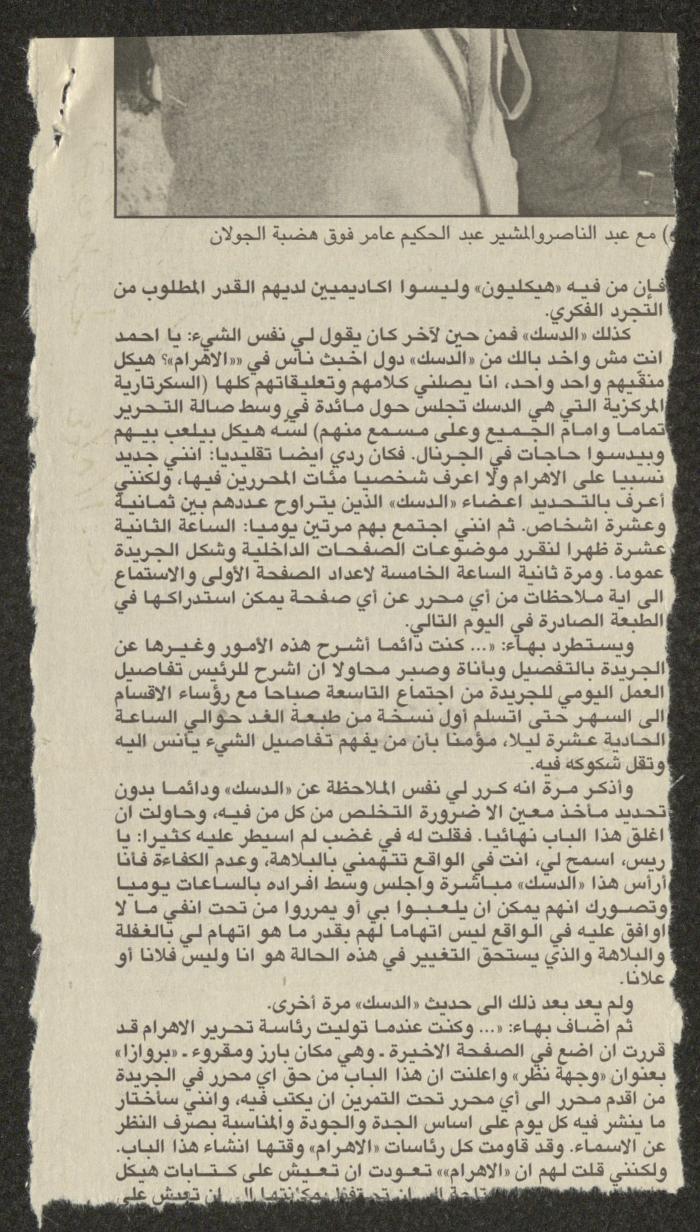 مع عبد الناصروالمشير عبد الحكيم عامر فوق هضبة الجولان
فإن من فيه «هيكليون» وليسوا اكاديميين لديهم القدر المطلوب من
التجرد الفكري.
كذلك «الدسك» فمن حين لآخر كان يقول لي نفس الشيء: يا احمد
انت مش واخد بالك من «الدسك» دول اخبث ناس في ««الاهرام»؟ هيكل
منقّيهم واحد واحد، انا يصلني كلامهم وتعليقاتهم كلها (السكرتارية
المركزية التي هي الدسك تجلس حول مائدة في وسط صالة التحرير
تماما وامام الجميع وعلى مسمع منهم) لسّه هيكل بيلعب بيهم
وبيدسوا حاجات في الجرنال. فكان ردي ايضا تقليديا: انني جديد
نسبيا على الاهرام ولا اعرف شخصيا مئات المحررين فيها، ولكنني
أعرف بالتحديد اعضاء «الدسك» الذين يتراوح عددهم بين ثمانية
وعشرة اشخاص. ثم انني اجتمع بهم مرتين يوميا: الساعة الثانية
عشرة ظهرا لنقرر موضوعات الصفحات الداخلية وشكل الجريدة
عموما. ومرة ثانية الساعة الخامسة لاعداد الصفحة الأولى والاستماع
الى اية ملاحظات من أي محرر عن أي صفحة يمكن استدراكها في
الطبعة الصادرة في اليوم التالي.
ويستطرد بهاء: «... كنت دائما أشرح هذه الأمور وغيرها عن
الجريدة بالتفصيل وبأناة وصبر محاولا ان اشرح للرئيس تفاصيل
العمل اليومي للجريدة من اجتماع التاسعة صباحا مع رؤساء الاقسام
الى السهر حتى اتسلم أول نسخة من طبعة الغد حوالي الساعة
الحادية عشرة ليلا، مؤمنا بأن من يفهم تفاصيل الشيء يأنس اليه
وتقل شكوكه فيه.
وأذكر مرة انه كرر لي نفس الملاحظة عن «الدسك» ودائما بدون
تحديد مأخذ معين الا ضرورة التخلص من كل من فيه، وحاولت ان
اغلق هذا الباب نهائيا. فقلت له في غضب لم اسيطر عليه كثيرا: يا
ريس، اسمح لي، انت في الواقع تتهمني بالبلاهة، وعدم الكفاءة فأنا
أرأس هذا «الدسك» مباشرة واجلس وسط افراده بالساعات يوميا
وتصورك انهم يمكن ان يلعبوا بي أو يمرروا من تحت انفي ما لا
اوافق عليه في الواقع ليس اتهاما لهم بقدر ما هو اتهام لي بالغفلة
والبلاهة والذي يستحق التغيير في هذه الحالة هو انا وليس فلانا أو
علانا.
ولم يعد بعد ذلك الى حديث «الدسك» مرة أخرى.
ثم اضاف بهاء: «... وكنت عندما توليت رئاسة تحرير الاهرام قد
قررت ان اضع في الصفحة الاخيرة ـ وهي مكان بارز ومقروء ـ «بروازا»
بعنوان «وجهة نظر» واعلنت ان هذا الباب من حق اي محرر في الجريدة
من اقدم محرر الى أي محرر تحت التمرين ان يكتب فيه، وانني سأختار
ما ينشر فيه كل يوم على اساس الجدة والجودة والمناسبة بصرف النظر
عن الاسماء. وقد قاومت كل رئاسات «الاهرام» وقتها انشاء هذا الباب.
ولكنني قلت لهم ان «الاهرام»» تعودت ان تعيش على كتابات هيكل
ان تحتفظ بمكانتها الى ان تعيش على